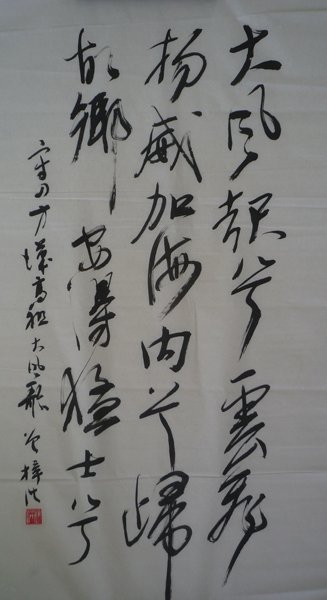 大風起兮雲飛
揚威加海内兮歸
故鄉安得猛士兮
守四方漢高祖大風歌